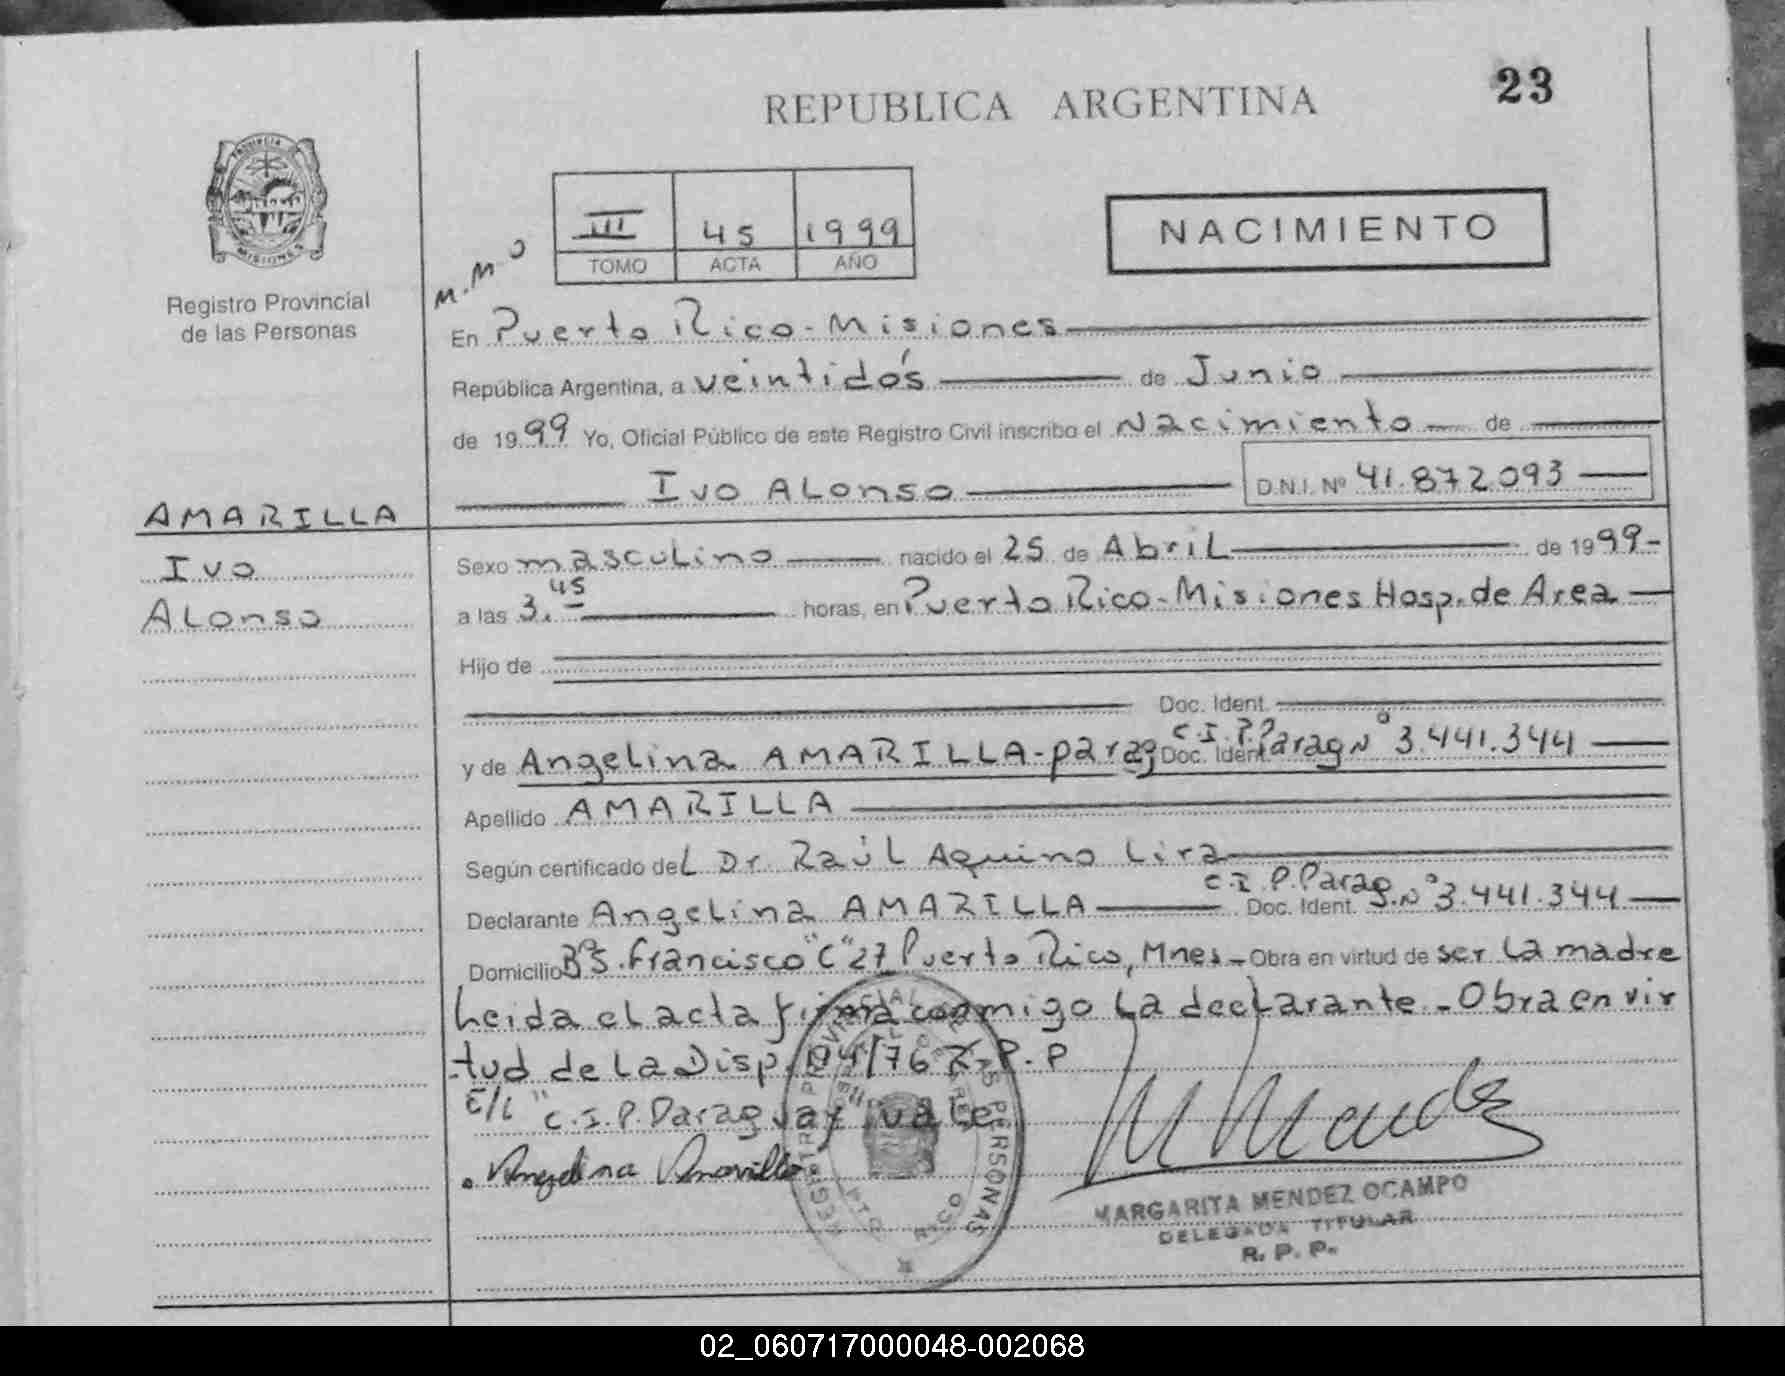 23
REPUBLICA ARGENTINA
PROVINCIA DE
MISIONES
Registro Provincial
de las Personas
III 45 1999
TOMO ACTA AÑO
NACIMIENTO
M.M O
En Puerto Rico - Misiones
República Argentina, a veintidós de Junio
de 1999 Yo, Oficial Público de este Registro Civil inscribo el Nacimiento de
Ivo ALonso D.N.I. Nº 41.872.093
AMARILLA
Ivo
ALonso
Sexo mascuLino nacido el 25 de AbriL de 1999-
a las 3.45 horas, en Puerto Rico - Misiones Hosp. de Area
Hijo de
Doc. Ident.
y de AngeLina AMARILLA - parag Doc. Ident. C.I.P.Parag Nº 3.441.344
Apellido AMARILLA
Según certificado deL Dr. RaúL Aquino Lira
Declarante AngeLina AMARILLA Doc. Ident. C.I.P.Parag. Nº 3.441.344
Domicilio Bº S. Francisco "C" 27 Puerto Rico, Mnes - Obra en virtud de ser La madre
Leida eL acta firma conmigo La decLarante - Obra en vir
tud de La Disp. 04/76 R.P.P
E/L "C.I.P.Paraguay" vaLe
Angelina Amarilla
M Mendez
MARGARITA MENDEZ OCAMPO
DELEGADA TITULAR
R. P. P.
PERSONAS
02_060717000048-002068